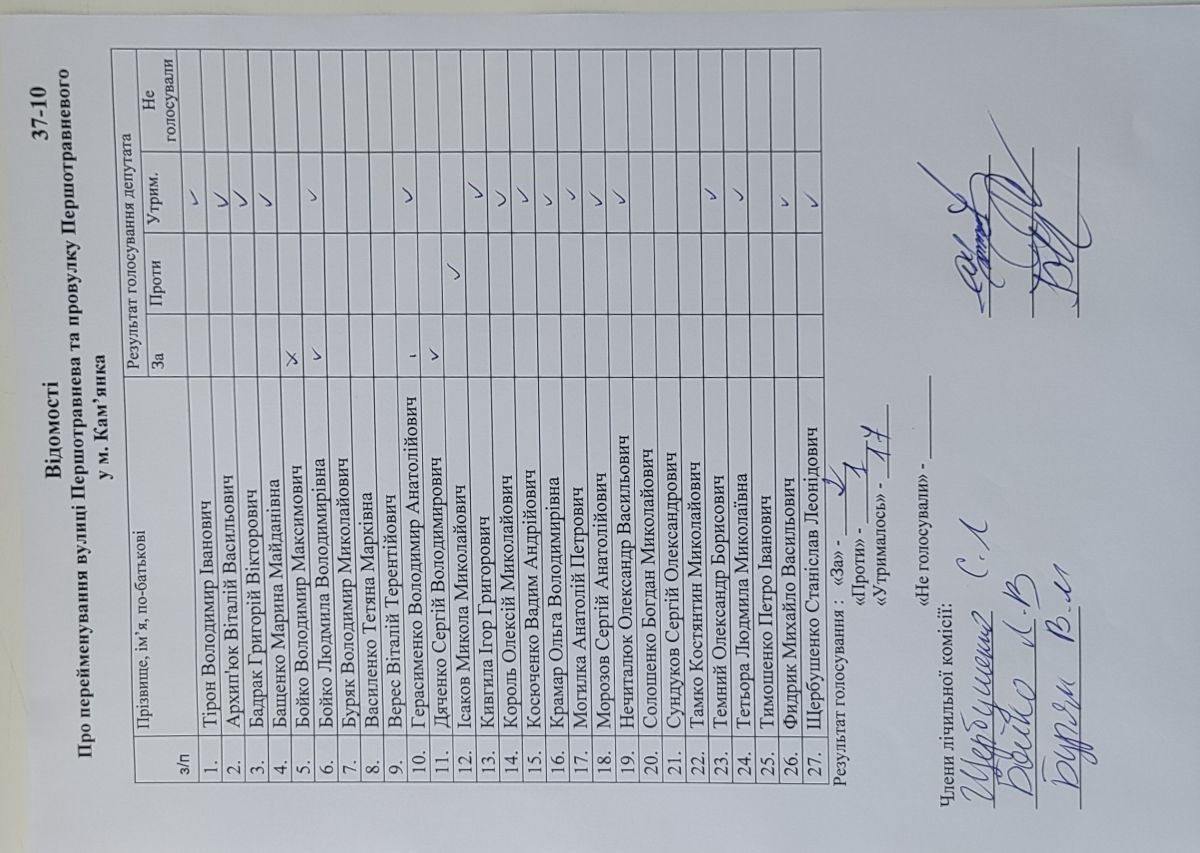 37-10
Відомості
Про перейменування вулиці Першотравнева та провулку Першотравневого
у м. Кам’янка
з/п Прізвище, ім’я, по-батькові Результат голосування депутата
За Проти Утрим. Не голосували
1. Тірон Володимир Іванович ✓
2. Архип'юк Віталій Васильович ✓
3. Бадрак Григорій Вікторович ✓
4. Баценко Марина Майданівна ✓
5. Бойко Володимир Максимович х
6. Бойко Людмила Володимирівна ✓ ✓
7. Буряк Володимир Миколайович
8. Василенко Тетяна Марківна
9. Верес Віталій Терентійович
10. Герасименко Володимир Анатолійович ✓
11. Дяченко Сергій Володимирович ✓
12. Ісаков Микола Миколайович ✓
13. Кивгила Ігор Григорович ✓
14. Король Олексій Миколайович ✓
15. Косюченко Вадим Андрійович ✓
16. Крамар Ольга Володимирівна ✓
17. Могилка Анатолій Петрович ✓
18. Морозов Сергій Анатолійович ✓
19. Нечиталюк Олександр Васильович ✓
20. Солошенко Богдан Миколайович
21. Сундуков Сергій Олександрович
22. Тамко Костянтин Миколайович
23. Темний Олександр Борисович ✓
24. Тетьора Людмила Миколаївна ✓
25. Тимошенко Петро Іванович
26. Фидрик Михайло Васильович ✓
27. Щербушенко Станіслав Леонідович ✓
Результат голосування : «За» -
«Проти» - 1
«Утрималось» - 17
«Не голосували» -
Члени лічильної комісії:
Щербушенко С.Л
Бойко Л.В
Буряк В.М